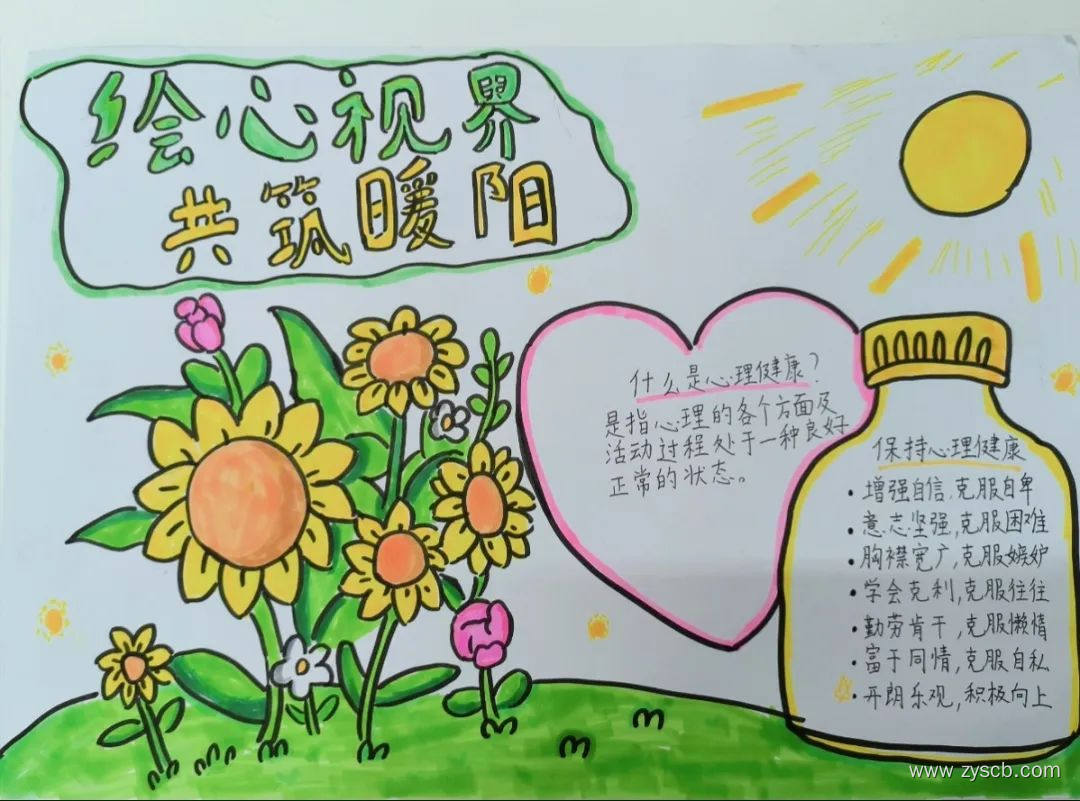 绘心视界
共筑暖阳
什么是心理健康?
是指心理的各个方面及
活动过程处于一种良好
正常的状态。
保持心理健康
·增强自信,克服自卑
·意志坚强,克服困难
·胸襟宽广,克服嫉妒
·学会克利,克服往往
·勤劳肯干,克服懒惰
·富于同情,克服自私
·开朗乐观,积极向上
www.zyscb.com